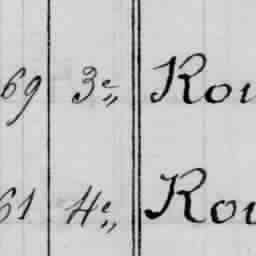 69 3e„ Rou
61 4e„ Rou